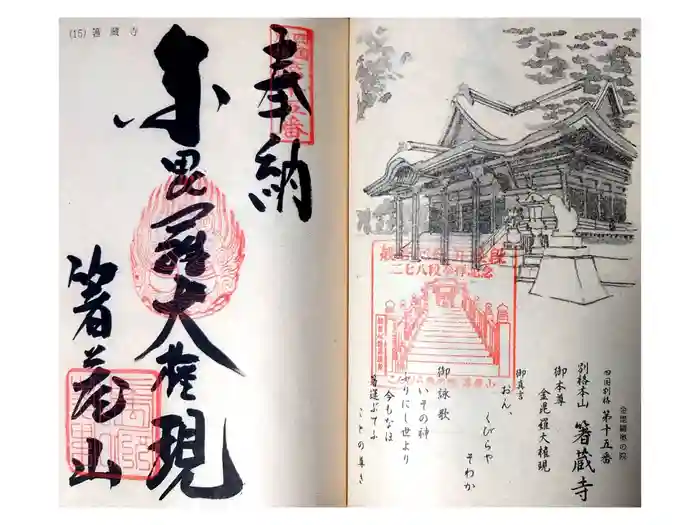 (15) 箸蔵寺
奉納
金毘羅大権現
箸蔵山
金毘羅奥の院
四国別格 第十五番
別格本山 箸蔵寺
御本尊 金毘羅大権現
御真言
おん、
くびらや
そわか
御詠歌
いその神
ふりにし世より
今もなほ
箸運ぶてふ
ことの尊き
二七八段参拝記念